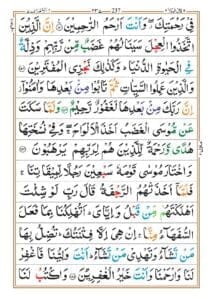 237
فِيْ رَحْمَتِكَ ۖ وَاَنْتَ اَرْحَمُ الرّٰحِمِيْنَ ﴿١٥١﴾ اِنَّ الَّذِيْنَ
اتَّخَذُوا الْعِجْلَ سَيَنَالُهُمْ غَضَبٌ مِّنْ رَّبِّهِمْ وَذِلَّةٌ
فِي الْحَيٰوةِ الدُّنْيَا ؕ وَكَذٰلِكَ نَجْزِي الْمُفْتَرِيْنَ ﴿١٥٢﴾
وَالَّذِيْنَ عَمِلُوا السَّيِّاٰتِ ثُمَّ تَابُوْا مِنْۢ بَعْدِهَا وَاٰمَنُوْۤا
اِنَّ رَبَّكَ مِنْۢ بَعْدِهَا لَغَفُوْرٌ رَّحِيْمٌ ﴿١٥٣﴾ وَلَمَّا سَكَتَ
عَنْ مُّوْسَى الْغَضَبُ اَخَذَ الْاَلْوَاحَ ۖ وَفِيْ نُسْخَتِهَا
هُدًى وَّرَحْمَةٌ لِّلَّذِيْنَ هُمْ لِرَبِّهِمْ يَرْهَبُوْنَ ﴿١٥٤﴾
وَاخْتَارَ مُوْسٰى قَوْمَهٗ سَبْعِيْنَ رَجُلًا لِّمِيْقَاتِنَا ۚ
فَلَمَّاۤ اَخَذَتْهُمُ الرَّجْفَةُ قَالَ رَبِّ لَوْ شِئْتَ
اَهْلَكْتَهُمْ مِّنْ قَبْلُ وَاِيَّايَ ؕ اَتُهْلِكُنَا بِمَا فَعَلَ
السُّفَهَآءُ مِنَّا ۚ اِنْ هِيَ اِلَّا فِتْنَتُكَ ؕ تُضِلُّ بِهَا
مَنْ تَشَآءُ وَتَهْدِيْ مَنْ تَشَآءُ ؕ اَنْتَ وَلِيُّنَا فَاغْفِرْ
لَنَا وَارْحَمْنَا وَاَنْتَ خَيْرُ الْغٰفِرِيْنَ ﴿١٥٥﴾ وَاكْتُبْ لَنَا